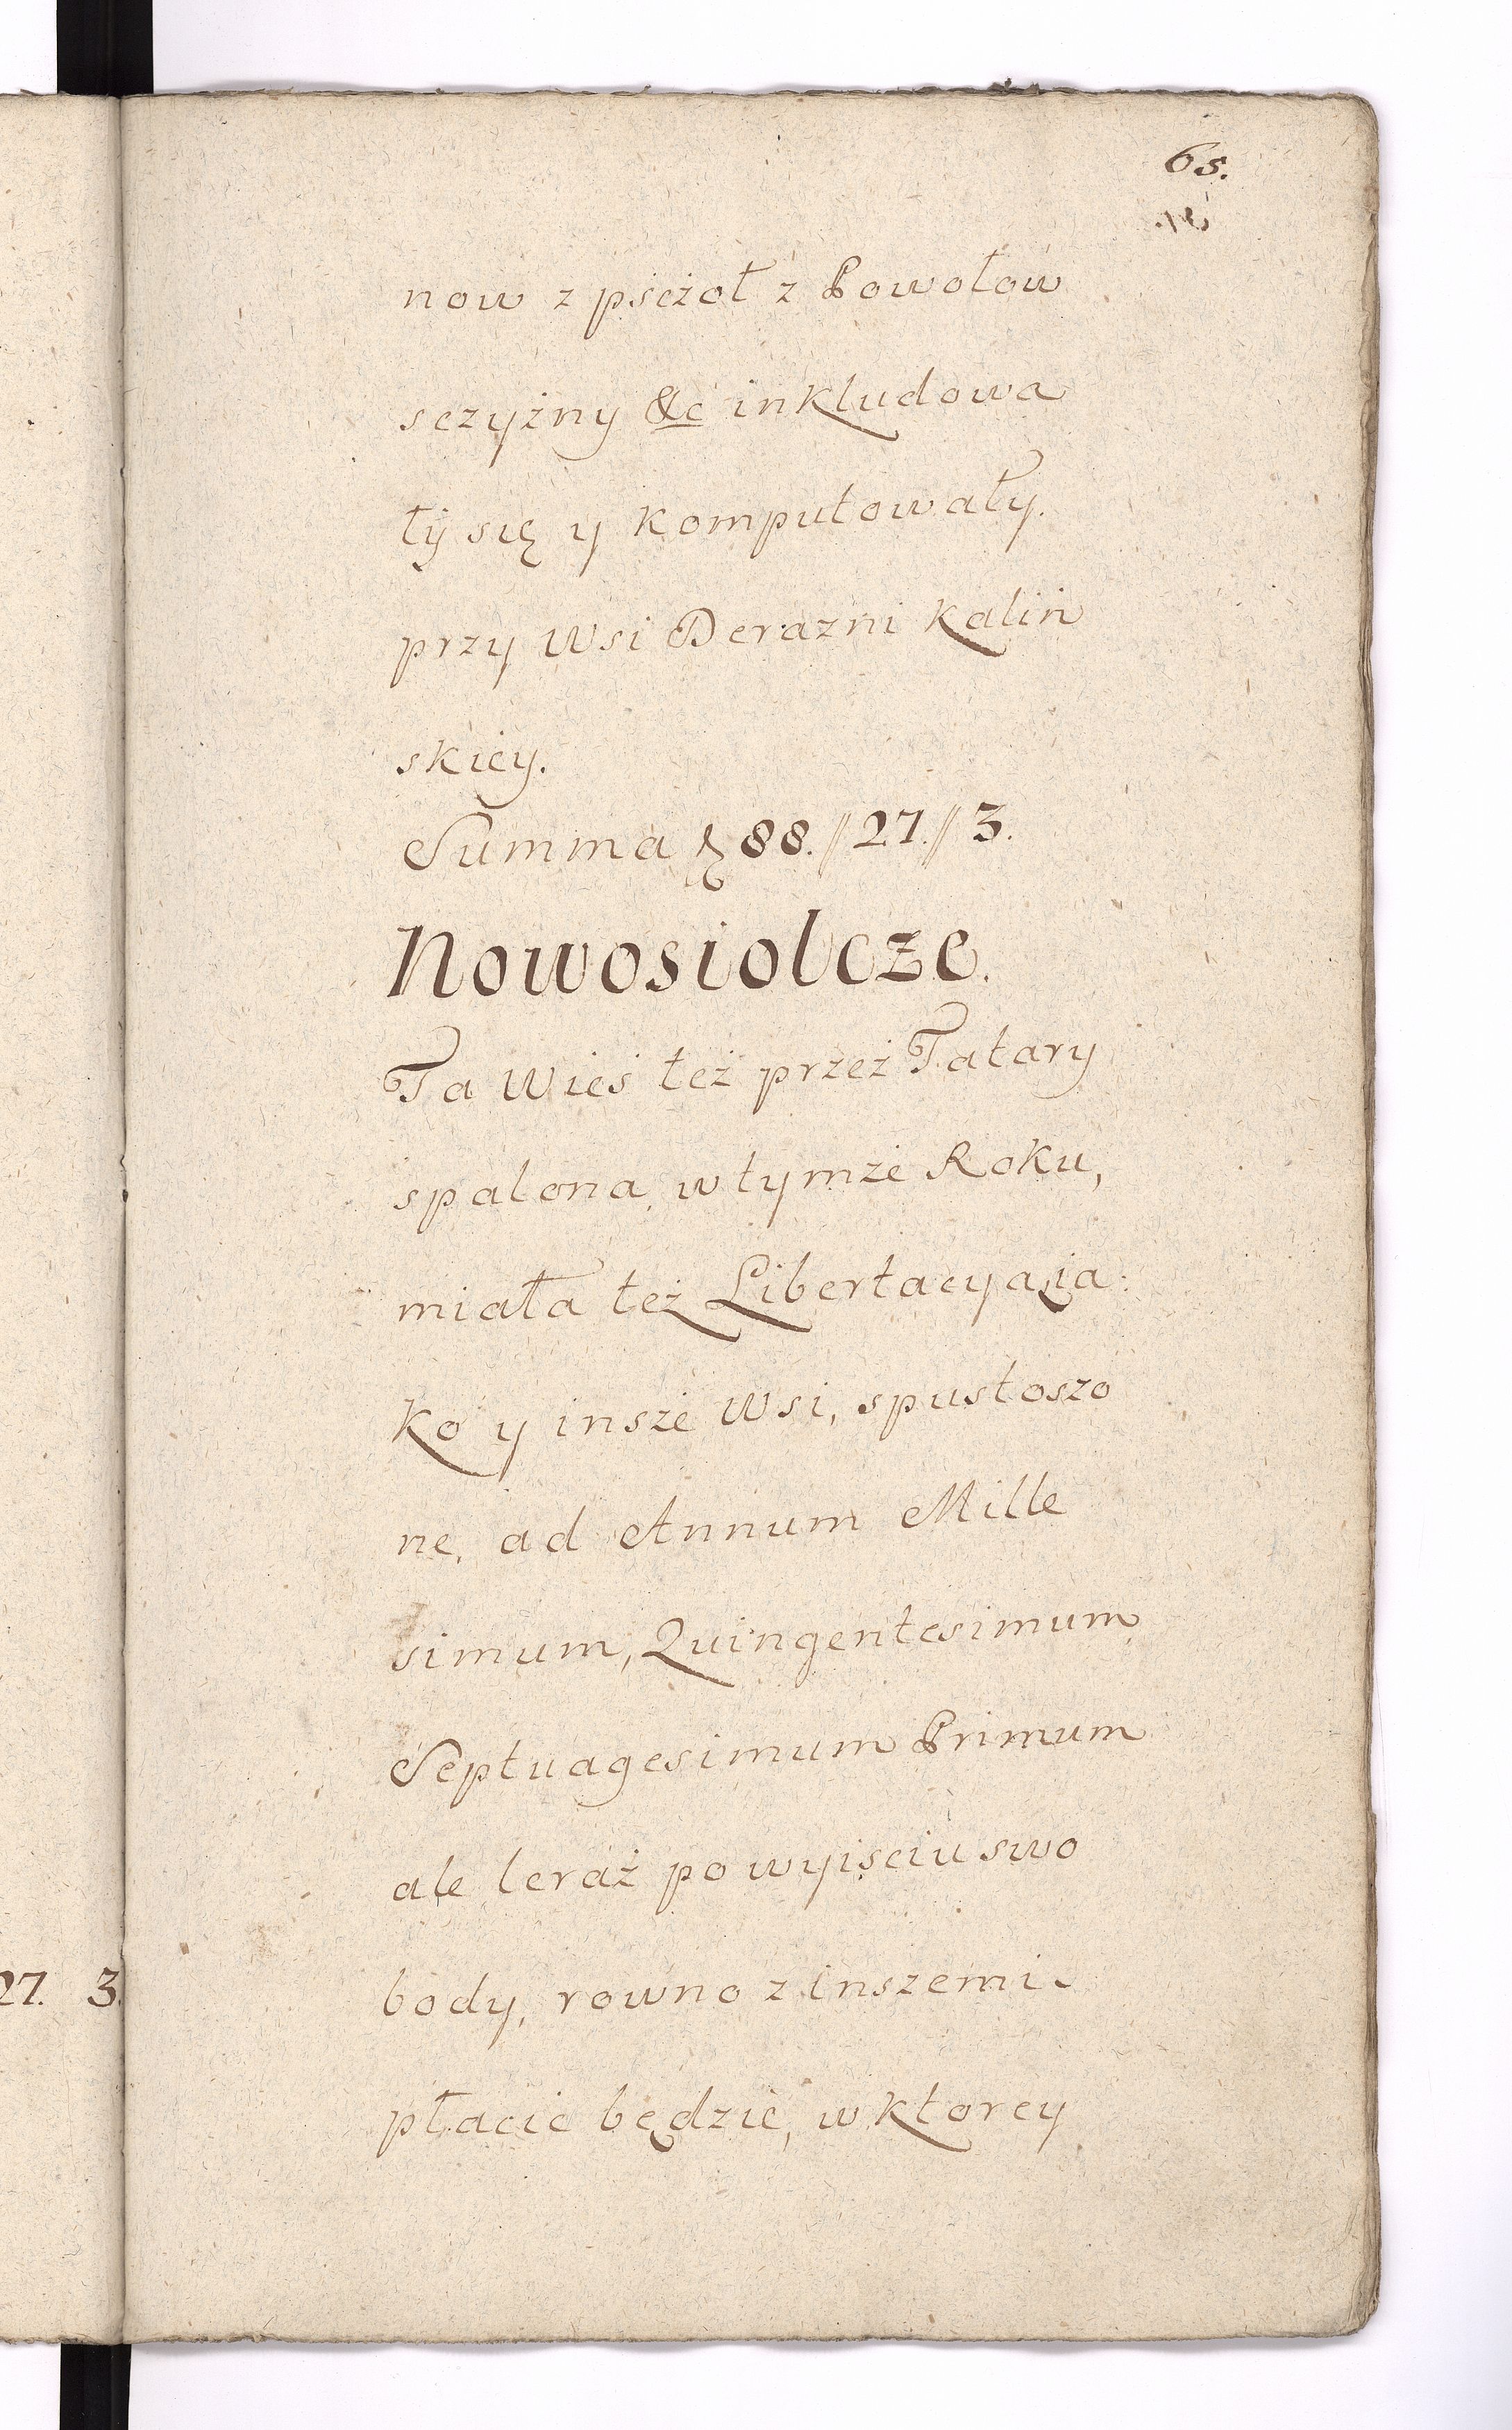 65.
now z psczoł z Powołow
sczyzny &c inkludowa
ły się y komputowały.
przy Wsi Derazni Kalin
skiey.
Summa 88.//27.//3.
Nowosiolcze.
Ta Wieś też przez Tatary
spalona, w tymże Roku,
miała też Libertacyą ia:
ko y insze Wsi, spustoszo
ne, ad Annum Mille
simum, Quingentesimum
Septuagesimum Primum
ale teraz po wyiściu swo
body, rowno z inszemi
27. 3.
płacić będzie, w ktorey